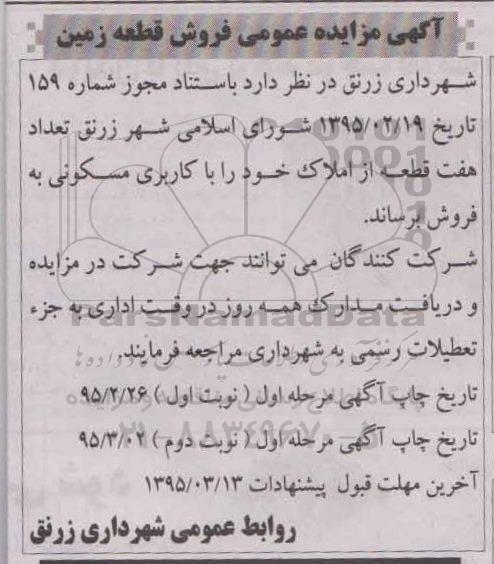 آگهی مزایده عمومی فروش قطعه زمین
شهرداری زرنق در نظر دارد باستناد مجوز شماره ۱۵۹
تاریخ ۱۳۹۵/۰۲/۱۹ شورای اسلامی شهر زرنق تعداد
هفت قطعه از املاک خود را با کاربری مسکونی به
فروش برساند.
شرکت کنندگان می توانند جهت شرکت در مزایده
و دریافت مدارک همه روز در وقت اداری به جزء
ParsNamadData
تعطیلات رسمی به شهرداری مراجعه فرمایند.
تاریخ چاپ آگهی مرحله اول ( نوبت اول ) ۹۵/۲/۲۶
تاریخ چاپ آگهی مرحله اول ( نوبت دوم ) ۹۵/۳/۰۲
آخرین مهلت قبول پیشنهادات ۱۳۹۵/۰۳/۱۳
روابط عمومی شهرداری زرنق